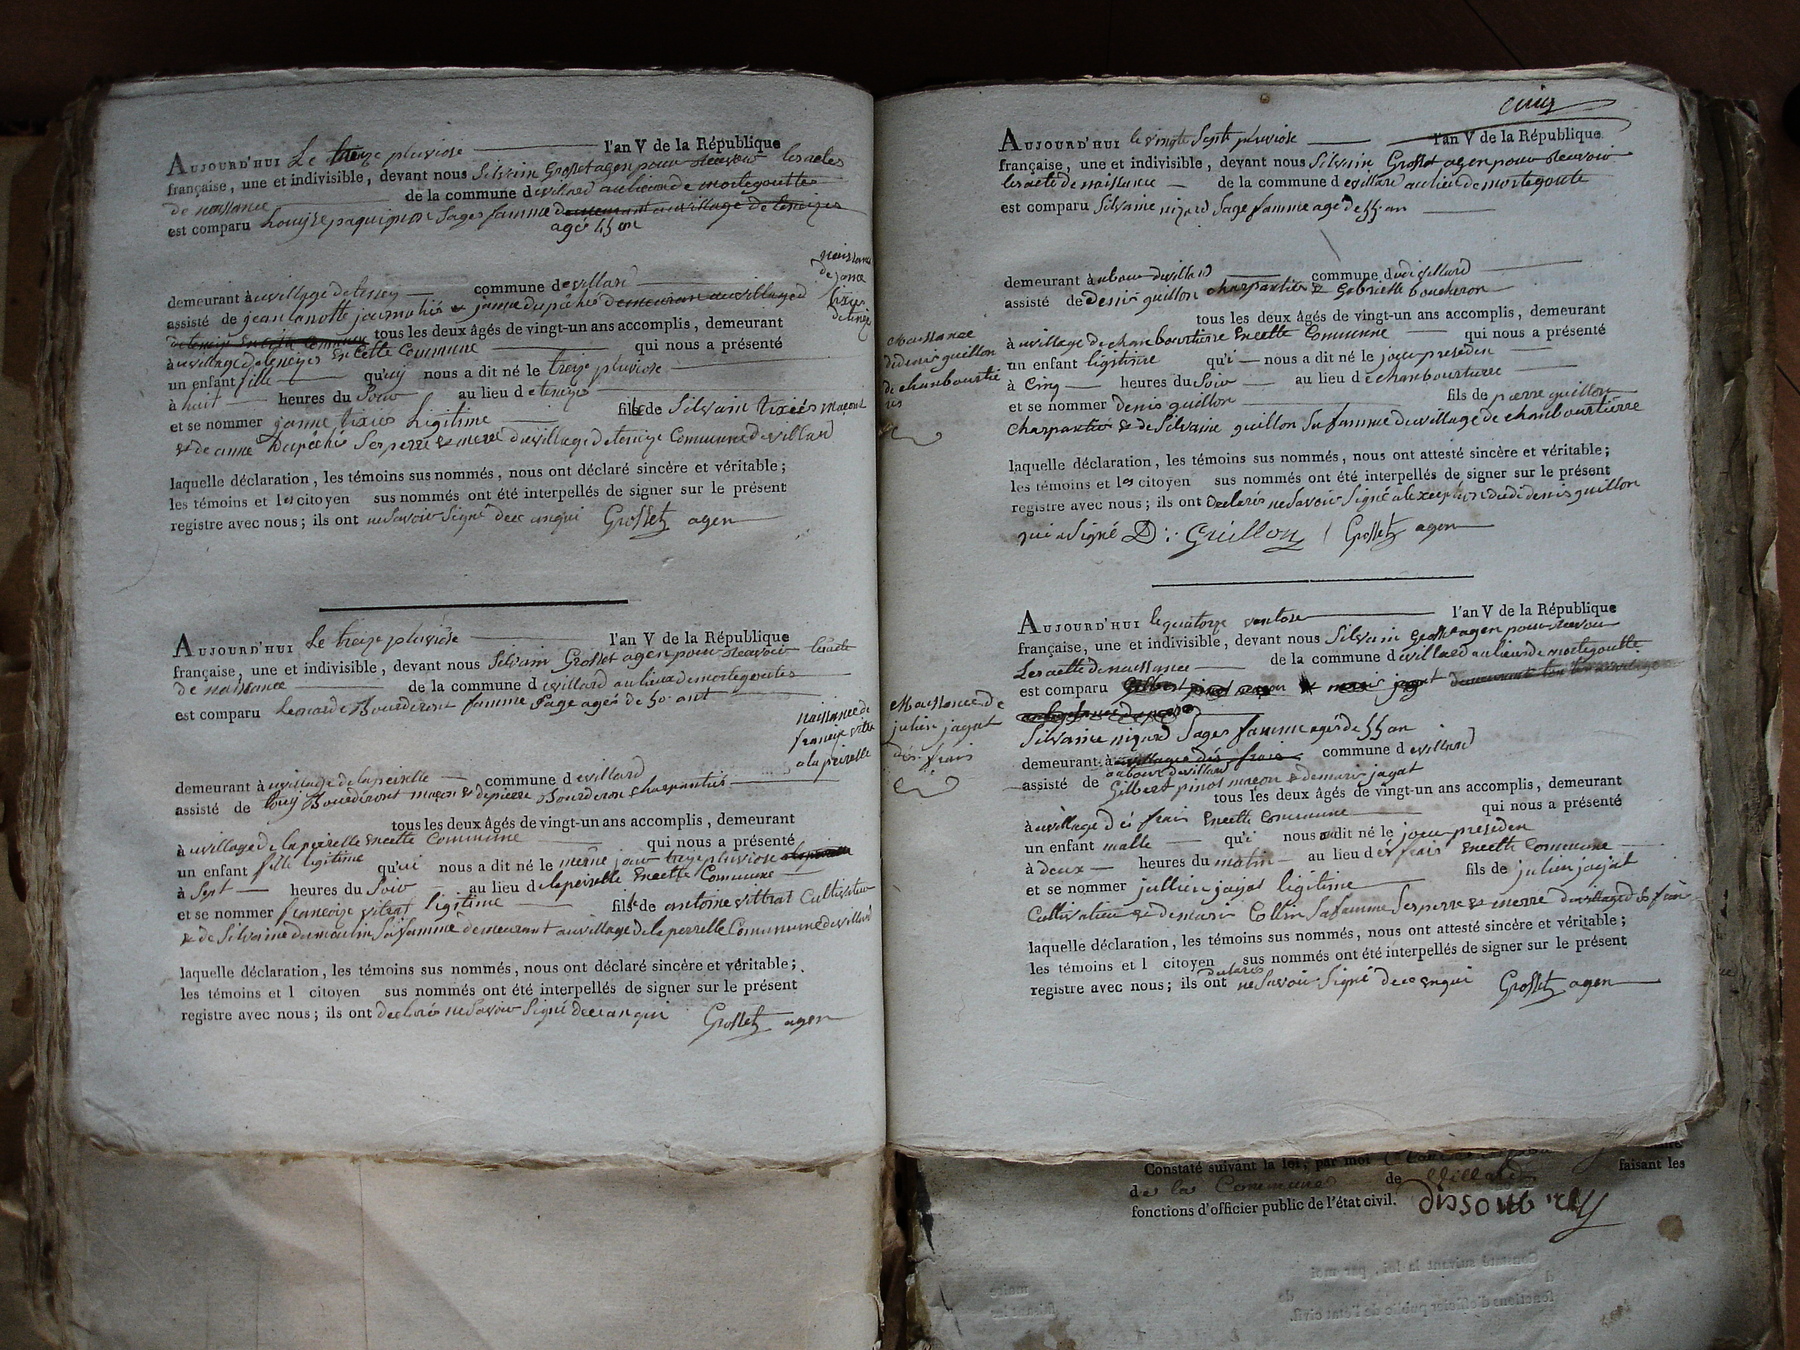 Aujourd'hui Le treze pluviose l'an V de la République
française, une et indivisible, devant nous Silvain Grosset agen pour recevoir les actes
de naissance de la commune d evillard au lieu de mortegoutte
est comparu Louise paquignon Sages famme
agés 45 an
demeurant à au village de commune d evillard
assisté de jean lanotte journalié & janne dupêché
tous les deux âgés de vingt-un ans accomplis, demeurant
à au village de teneizes En cette Commune qui nous a présenté
un enfant fille qu'uy nous a dit né le treize pluviose
à huit heures du Soir au lieu d eteneize
et se nommer janne tixier Ligitime fille de Silvain tixier maçont
& de anne Dupêché Ses perre & merre du village de Commune de villard
laquelle déclaration, les témoins sus nommés, nous ont déclaré sincère et véritable;
les témoins et les citoyen sus nommés ont été interpellés de signer sur le présent
registre avec nous; ils ont ne Savoir Signé de ce anqui Grosset agen
naissance
de janne
tixier
Aujourd'hui Le treze pluviose l'an V de la République
française, une et indivisible, devant nous Silvain Grosset agen pour recevoir les acte
de naissance de la commune d evillard au lieux de mortegoutes
est comparu Leonarde Bourderont famme Sage agés de 50 ant
naissance de
françoize vitra
a la peirelle
demeurant à au village de la peirelle commune d evillard
assisté de Bourderont maçon & de pierre Bourderon charpantié
tous les deux âgés de vingt-un ans accomplis, demeurant
à au village de la peirelle En cette Commune qui nous a présenté
un enfant fille ligitime qu'ui nous a dit né le même jour treze pluviose
à Sept heures du Soir au lieu d elapeirelle En cette Commune
et se nommer françoize vitrat ligitime fille de antoine vittrat Cultivateur
& de Silvaine dumoulin Sa famme demeurant au village de la perrelle Commune de villard
laquelle déclaration, les témoins sus nommés, nous ont déclaré sincère et véritable;
les témoins et l citoyen sus nommés ont été interpellés de signer sur le présent
registre avec nous; ils ont declarés ne Savoir Signé de ce anqui Grosset agen
cinq
Aujourd'hui le vingte Septe pluviose l'an V de la République
française, une et indivisible, devant nous Silvain Grosset agen pour recevoir
les acte de naissance de la commune d evillard au lieu de mortegoute
est comparu Silvaine nigard Sage famme agé de 55 an
demeurant à au bour du villard commune du di villard
assisté de denis guillon charpantier & Gabrielle boucheron
tous les deux âgés de vingt-un ans accomplis, demeurant
à au village de chanbourtierre En cette Commune qui nous a présenté
un enfant ligitime qu'i nous a dit né le jour preseden
à Cinq heures du Soir au lieu d echanbourturee
et se nommer denis guillon fils de pierre guillon
charpantier & de Silvaine guillon Sa famme du village de chanbourtierre
laquelle déclaration, les témoins sus nommés, nous ont attesté sincère et véritable;
les témoins et les citoyen sus nommés ont été interpellés de signer sur le présent
registre avec nous; ils ont declarés ne Savoir Signé a lexception du di denis guillon
qui a Signé D: Guillon Grosset agen
Naissance
de denis guillon
de chanbourtié
res
Aujourd'hui le quatorze ventose l'an V de la République
française, une et indivisible, devant nous Silvain Grosset agen pour recevoir
Les actte de naissance de la commune d evillard au lieux de mortegoutte
est comparu
Silvaine nigard Sages famme agés de 55 an
Naissance de
julien jagat
dés frais
demeurant à au village dés frais commune d evillard
au bour de villard
assisté de Gilbert pinot maçon & de marie jagat
tous les deux âgés de vingt-un ans accomplis, demeurant
à au village d és frais En cette Commune qui nous a présenté
un enfant malle qu'i nous a dit né le jour preseden
à deux heures du matin au lieu d és frais En cette Commune
et se nommer jullien jagat ligitime fils de julien jagat
Cultivateur & de marie Collin Sa famme Ses perre & merre du village d és frais
laquelle déclaration, les témoins sus nommés, nous ont attesté sincère et véritable;
les témoins et l citoyen sus nommés ont été interpellés de signer sur le présent
registre avec nous; ils ont declarés ne Savoir Signé de ce enqui Grosset agen
Constaté suivant la loi, par moi
de la Commune de Villard faisant les
fonctions d'officier public de l'état civil.